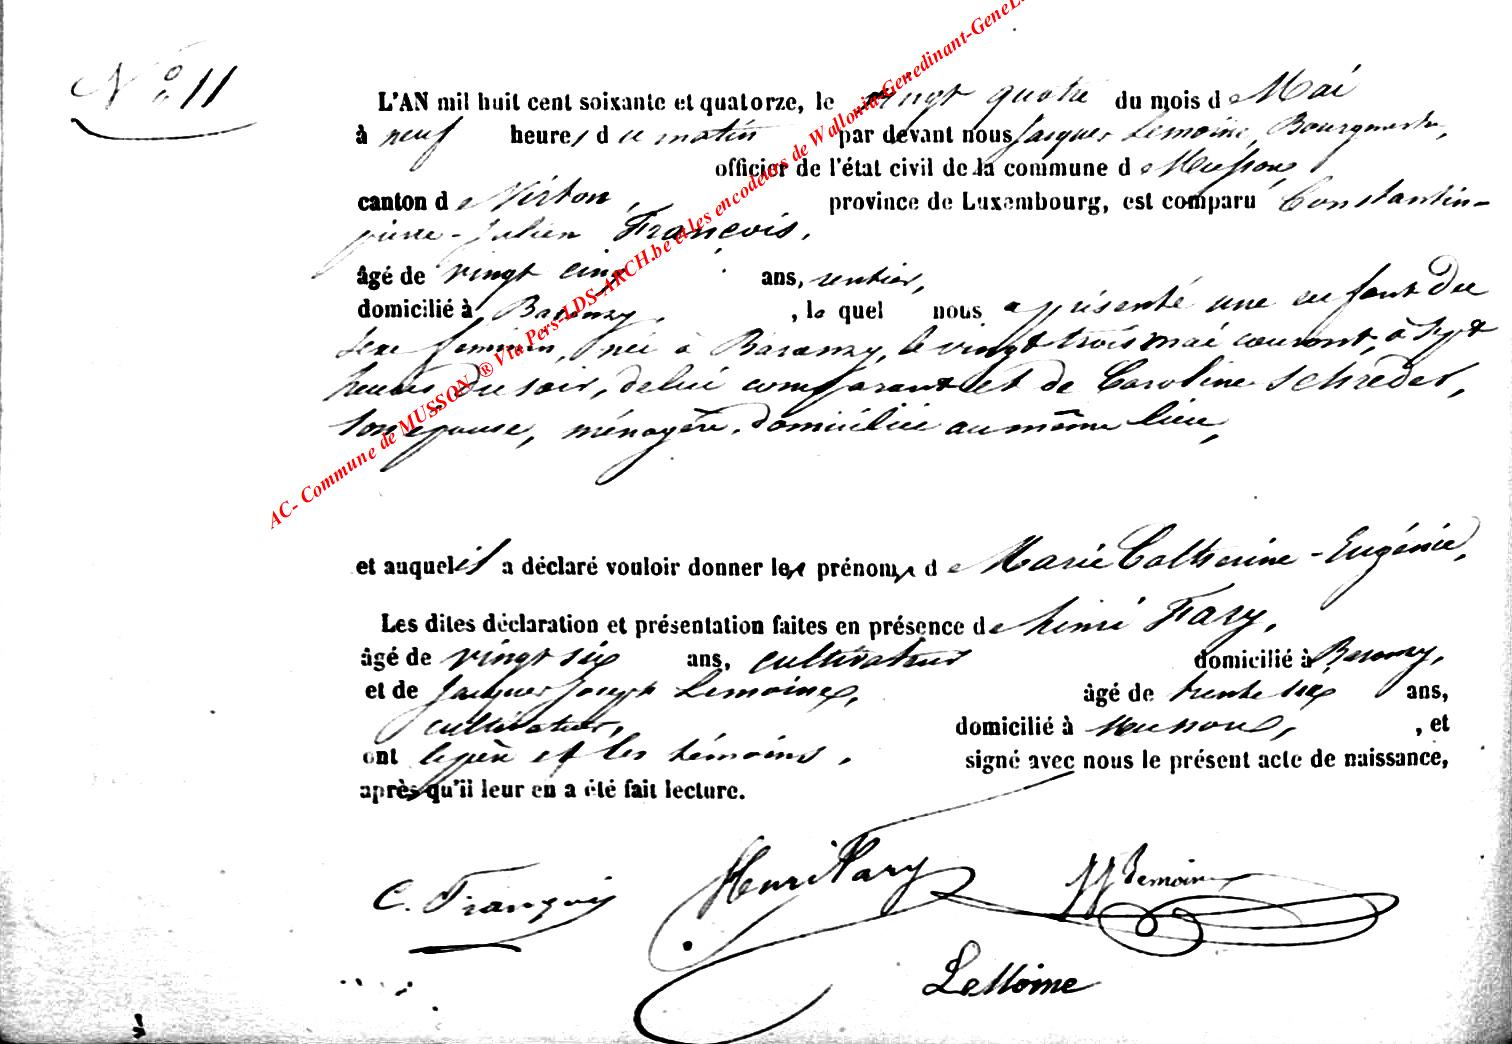 N° 11
L'AN mil huit cent soixante et quatorze, le vingt quatre du mois de Mai
à neuf heures du matin par devant nous Jacques Lemoine, Bourgmestre,
officier de l'état civil de la commune de Musson,
canton de Virton, province de Luxembourg, est comparu Constantin-
pierre-Julien François,
âgé de vingt cinq ans, rentier,
domicilié à Baranzy, , le quel nous a présenté une enfant du
sexe féminin, née à Baranzy, le vingt trois mai courant, à sept
heures du soir, de lui comparant et de Caroline Schreder,
son épouse, ménagère, domiciliée au même lieu,
et auquel il a déclaré vouloir donner les prénoms de Marie Catherine-Eugénie,
Les dites déclaration et présentation faites en présence de henri Fary,
âgé de vingt six ans, cultivateur domicilié à Baranzy,
et de Jacques Joseph Lemoine, âgé de trente six ans,
cultivateur, domicilié à Musson, , et
ont le père et les témoins, signé avec nous le présent acte de naissance,
après qu'il leur en a été fait lecture.
C. François Henri Fary JJ Lemoine
LeMoine
AC- Commune de MUSSON ® Via Pers-LDS-ARCH.be et les encodeurs de Wallonia-Genedinant-GeneL